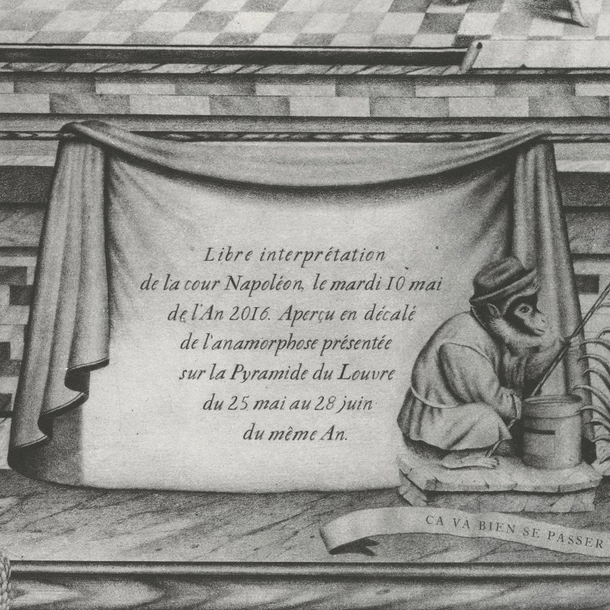 Libre interprétation
de la cour Napoléon, le mardi 10 mai
de l'An 2016. Aperçu en décalé
de l'anamorphose présentée
sur la Pyramide du Louvre
du 25 mai au 28 juin
du même An.
CA VA BIEN SE PASSER